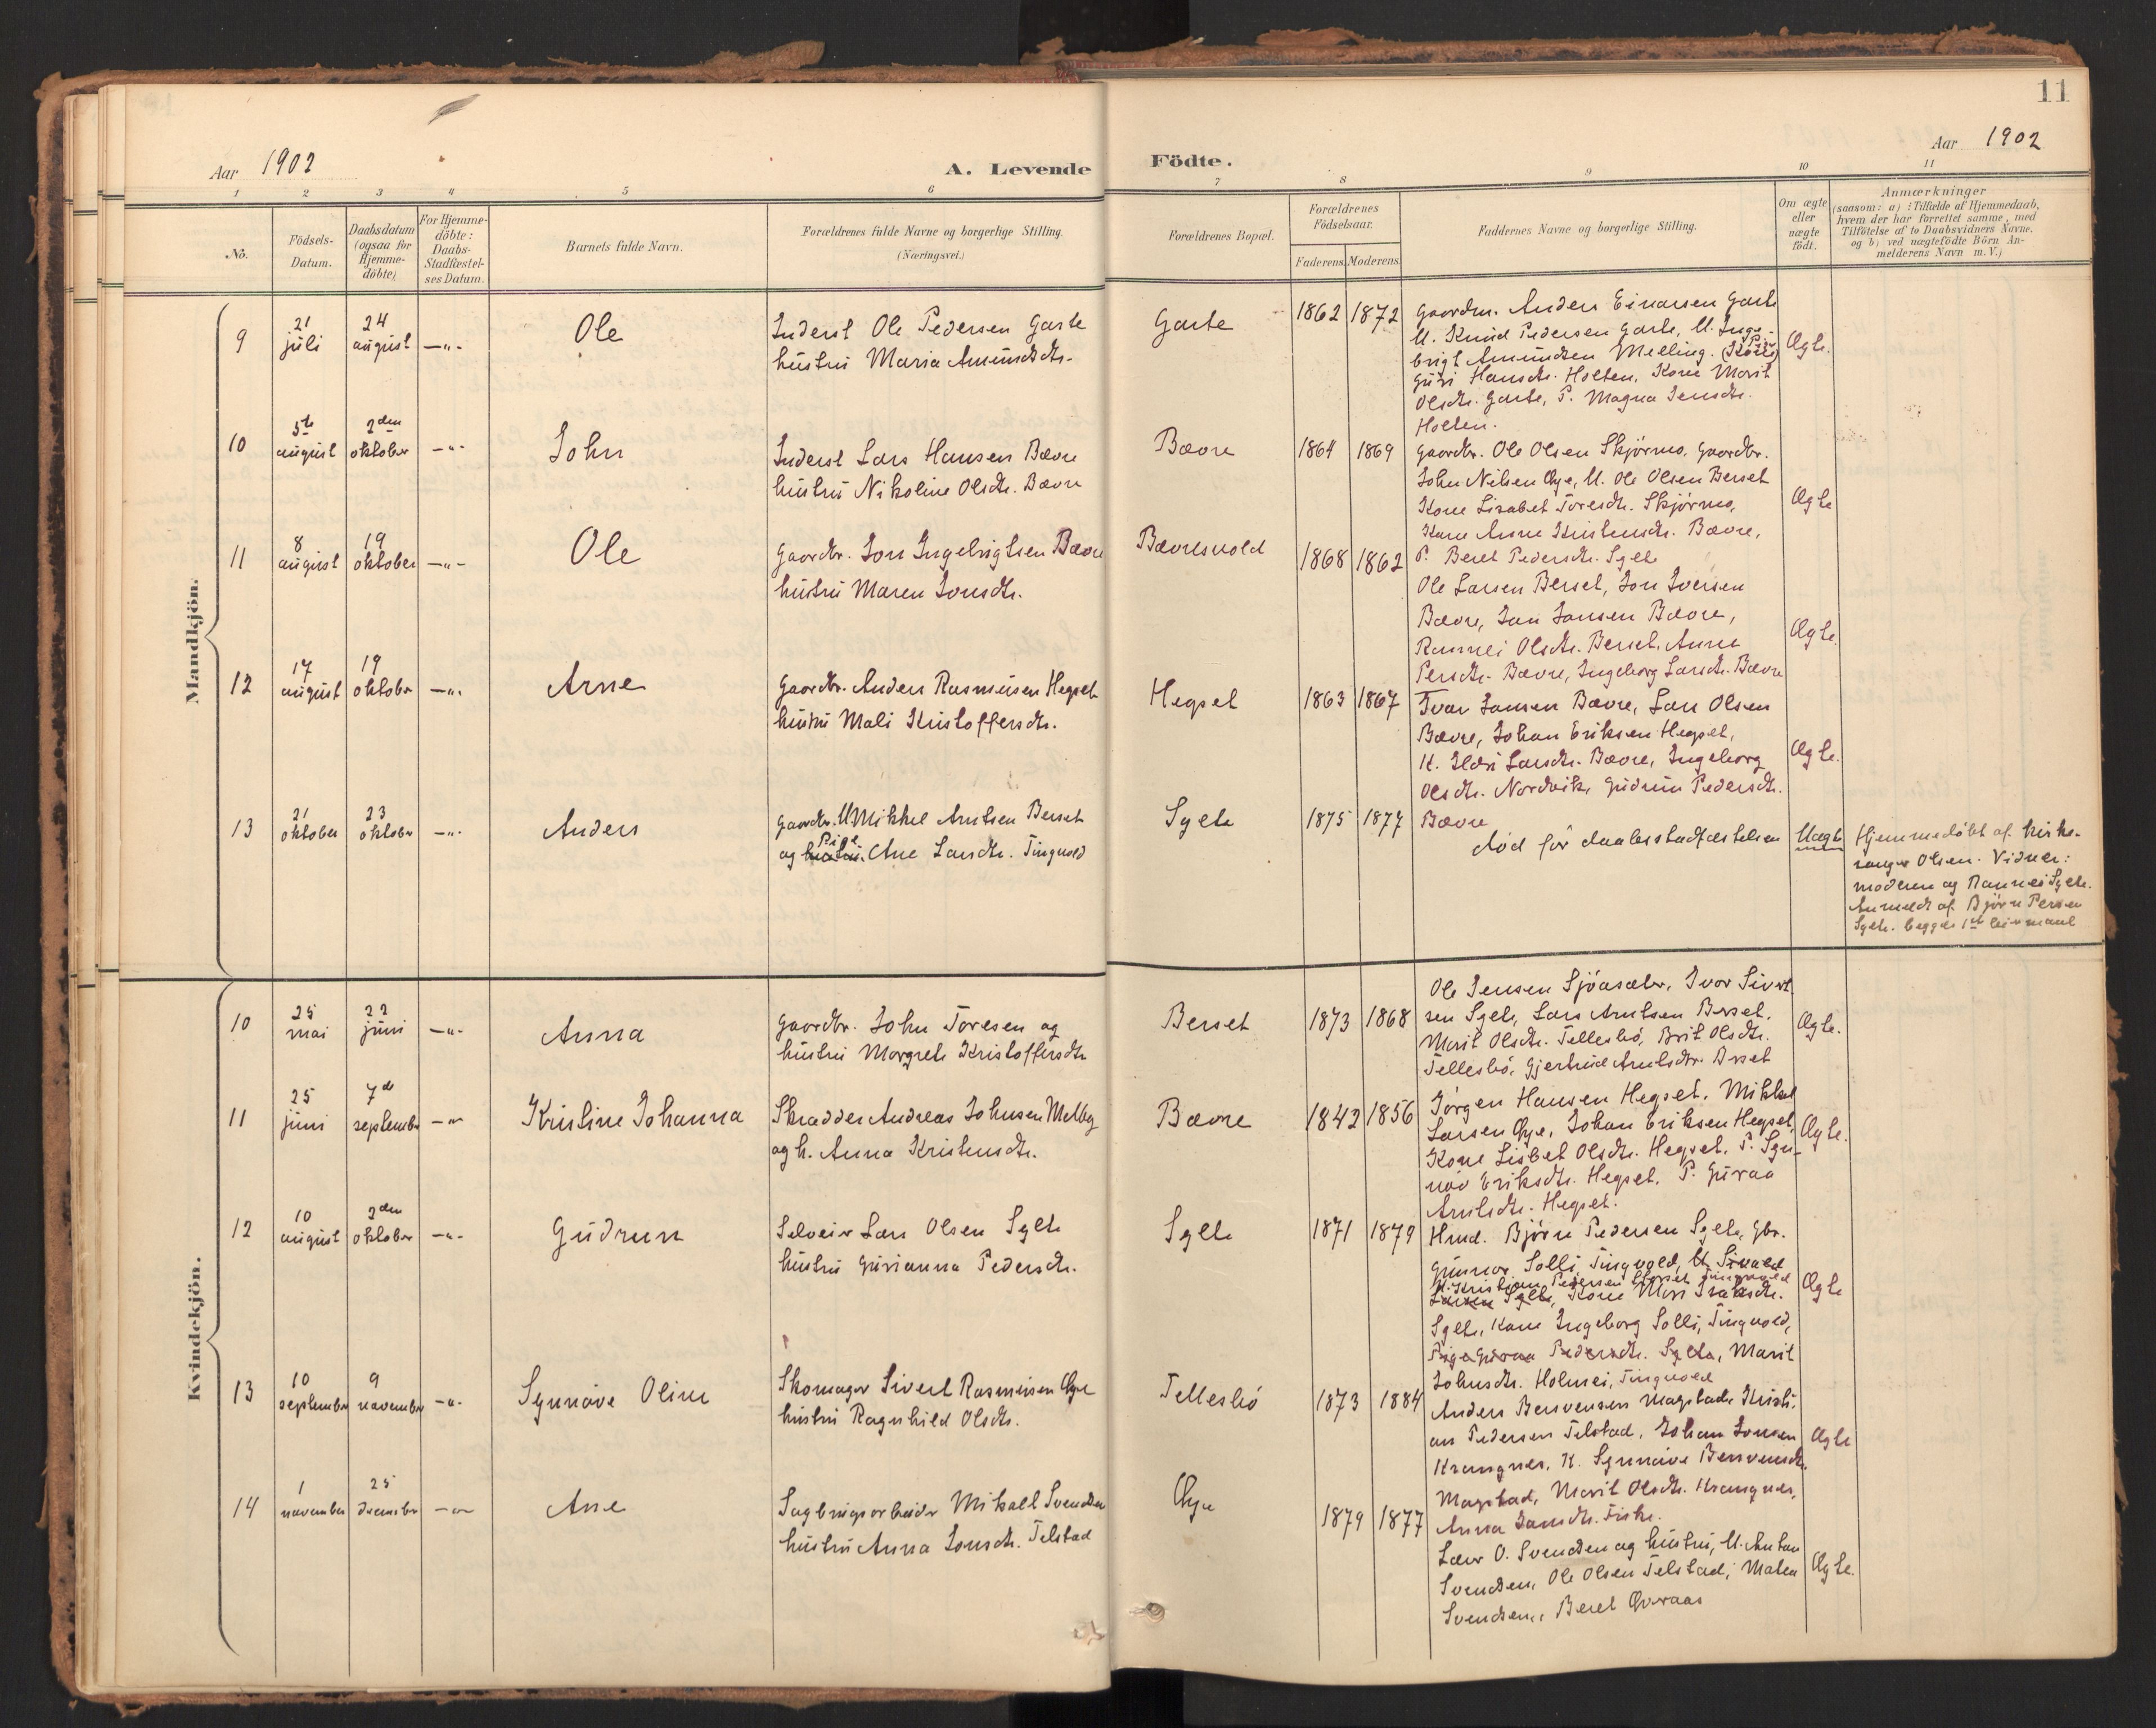 11
Aar 1902
A. Levende
Födte.
Aar 1902
1 2 3 4 5 6 7 8 9 10 11
No.
Födsels-
Datum.
Daabsdatum
(ogsaa for
Hjemme-
döbte)
For Hjemme-
döbte:
Daabs-
Stadfæstel-
ses Datum.
Barnets fulde Navn.
Forældrenes fulde Navne og borgerlige Stilling.
(Næringsvei.)
Forældrenes Bopæl.
Forældrenes
Födselsaar.
Faderens. Moderens.
Faddernes Navne og borgerlige Stilling.
Om ægte
eller
uægte
födt.
Anmærkninger
(saasom: a) : Tilfælde af Hjemmedaab,
hvem der har forrettet samme, med
Tilföielse af to Daabsvidners Navne.
og b) ved uægtefödte Börn An-
melderens Navn m.V.)
Mandkjön.
9
21
juli
24
august
—"-
Ole
Inderst Ole Pedersen Garte
hustru Maria Amundsdtr.
Garte
1862 1872
Gaardm. Anders Einarsen Garte
U. Knud Pedersen Garte, U. Inge-
brigt Amundsen Melling. (Kone) Pige
Guri Hansdtr. Holten, Kone Marit
Olsdtr. Garte, P. Magna Jensdtr.
Holten.
Ægte.
10
5te
august
2den
oktober
—"-
John
Inderst Lars Hansen Bævre
hustru Nikoline Olsdtr. Bævre
Bævre
1864 1869
Gaardbr. Ole Olsen Skjörmo, Gaardbr.
John Nilsen Öye, U. Ole Olsen Berset
Kone Lisabet Toresdtr. Skjörmo,
Kone Anne Kristensdtr. Bævre,
P. Beret Pedersdtr. Sylte
Ægte
11
8
august
19
oktober
—"-
Ole
Gaardbr. Jon Ingebrigtsen Bævre
hustru Maren Jonsdtr.
Bævresvold
1868 1862
Ole Larsen Berset, Jon Iversen
Bævre, Jon Jonsen Bævre,
Rannei Olsdtr. Berset, Anne
Persdtr. Bævre, Ingeborg Larsdtr. Bævre
Ægte.
12
17
august
19
oktober
—"-
Arne
Gaardbr. Anders Rasmusen Hegset
hustru Mali Kristoffersdtr.
Hegset
1863 1867
Ivar Jonsen Bævre, Lars Olsen
Bævre, Johan Eriksen Hegset,
K. Ildri Larsdtr. Bævre, Ingeborg
Olsdtr. Nordvik, Gudrun Pedersdtr.
Bævre
Ægte.
13
21
oktober
23
oktober
—"-
Anders
Gaardbr. U Mikkel Arntsen Berset
og hustru. Pike Ane Larsdtr. Tingvold
Sylte
1875 1877
död för daabsstadfæstelsen
Uægte
Hjemmedöbt af kirke-
sanger Olsen. Vidner:
moderen og Rannei Sylte.
Anmeldt af Björn Persen
Sylte. begges 1ste leiermaal
Kvindekjön.
10
25
mai
22
juni
—"-
Anna
Gaardbr. John Toresen og
hustru Margrete Kristoffersdtr.
Berset
1873 1868
Ole Jensen Sjöasæter, Ivar Sivert
sen Sylte, Lars Arntsen Berset.
Marit Olsdtr. Tellesbö, Brit Olsdtr.
Tellesbö, Gjertrud Arntsdtr. Berset
Ægte.
11
25
juni
7de
september
—"-
Kristine Johanna
Skrædder Andreas Johnsen Melby
og h. Anna Kristensdtr.
Bævre
1842 1856
Jörgen Hansen Hegset. Mikkel
Larsen Öye, Johan Eriksen Hegset,
Kone Lisbet Olsdtr. Hegset. P. Syn-
növ Eriksdtr. Hegset. P. Guraa
Arntsdtr. Hegset.
Ægte.
12
10
august
2den
oktober
—"-
Gudrun
Selveier Lars Olsen Sylte
hustru Gurianna Pedersdtr.
Sylte
1871 1879
Hmd. Björn Pedersen Sylte, Gbr.
Gunnar Solli, Tingvold, U. Sivert
U. Kristian Pedersen Tingvold
Larsen Sylte, Kone Mari Isaksdtr.
Sylte, Kone Ingeborg Solli, Tingvold,
Pige Guraa Pedersdtr. Sylte, Marit
Johnsdtr. Holmei, Tingvold
Ægte
13
10
september
9
november
—"-
Synnöve Oline
Skomager Sivert Rasmusen Öye
hustru Ragnhild Olsdtr.
Tellesbö
1873 1884
Anders Bersvensen Magstad, Kristi-
an Pedersen Telstad, Johan Jonsen
Krangnes, K. Synnöve Bersvensdtr.
Magstad, Marit Olsdtr. Krangnes,
Anna Jonsdtr. Fiske.
Ægte
14
1
november
25
desember
—"-
Ane
Sagbrugsarbeider Mikall Svendsen
hustru Anna Jonsdtr. Telstad
Öye
1879 1877
Lars O. Svendsen og hustru, U. Anton
Svendsen, Ole Olsen Telstad, Malea
Svendsen, Beret Gvraas
Ægte.